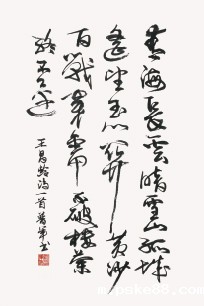 青海長雲暗雪山孤城
遙望玉門關黃沙
百戰穿金甲不破樓蘭
終不還
王昌齡詩一首